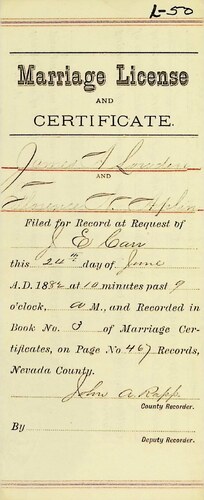 L-50
Marriage License
AND
CERTIFICATE.
James
AND
Florence
Filed for Record at Request of
J E Carr
this 24th day of June
A.D. 1882 at 10 minutes past 9
o'clock, a M., and Recorded in
Book No. 3 of Marriage Cer-
tificates, on Page No 467 Records,
Nevada County.
John A. Rapp
County Recorder.
By
Deputy Recorder.